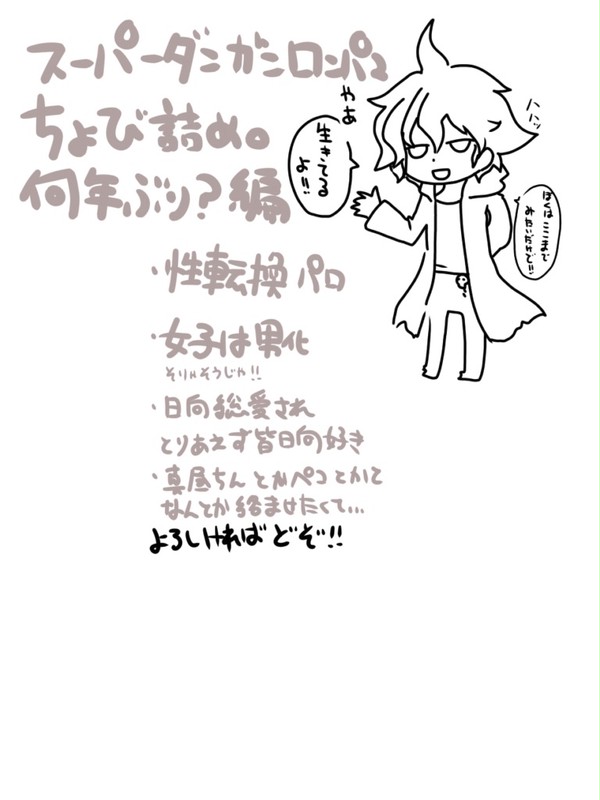 スーパーダンガンロンパ2
ちょび詰め。
何年ぶり?編
・性転換パロ
・女子は男化
そりゃそうじゃ!!
・日向総愛され
とりあえず皆日向好き
・真昼ちんとかペコとかて
なんとか絡ませたくて…
よろしければどぞ!!
やぁ
生きてる
よ!!
ハハッ
ぼくはここまで
みたいだけど!!